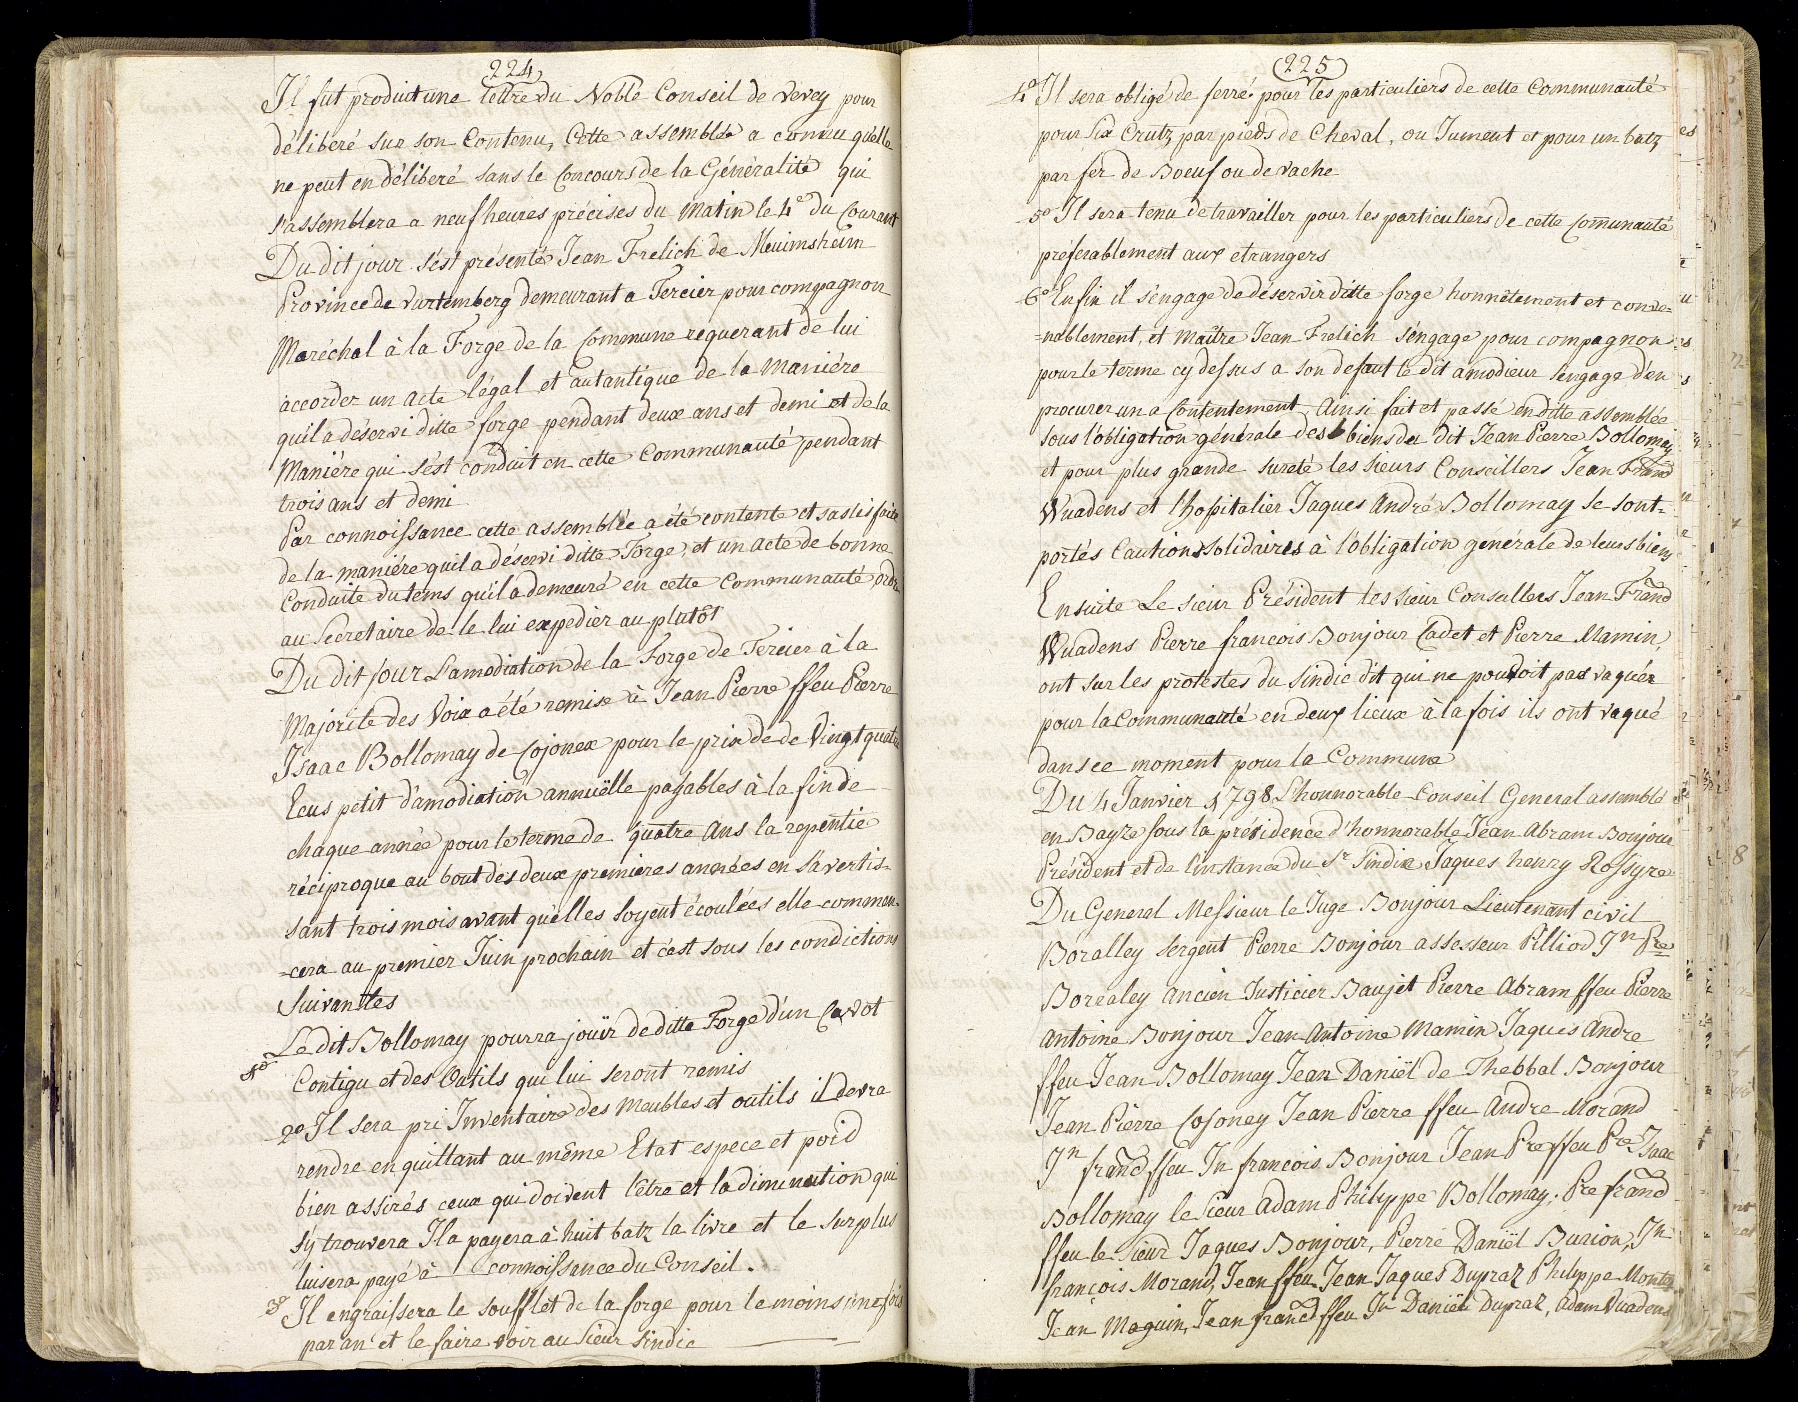 224
Il fut produit une lettre du Noble Conseil de Vevey pour
déliberé sur son Contenu, Cette assemblée a connu quelle
ne peut en déliberé sans le Concours de la Généralité qui
s'assemblera a neuf heures précises du Matin le 4e du Courant
Du dit jour s'est présenté Jean Frelich de Meuimsheim
Province de Vurtemberg demeurant a Tercier pour compagnon
Maréchal à la Forge de la Commune requerant de lui
accorder un acte légal et autantique de la Maniére
qu'il a déservi ditte forge pendant deux ans et demi et de la
Maniére qui s'est conduit en cette Communauté pendant
trois ans et demi
Par connoissance cette assemblée a été contente et sastisfaite
de la maniére qu'il a déservi ditte Forge, et un acte de bonne
Conduite du tems qu'il a demeuré en cette Communauté, ordre
au Secretaire de le lui expedier au plutôt
Du dit jour L'amodiation de la Forge de Tercier à la
Majorité des Voix a été remise à Jean Pierre ffeu Pierre
Isaac Bollomay de Cojonex pour le prix de de Vingt quatre
Ecus petit d'amodiation annuëlle payables à la fin de
chaque année pour le terme de quatre Ans la repentie
réciproque au bout des deux premieres années en s'avertis=
sant trois mois avant qu'elles soyent écoulées elle commen=
=cera au premier Juin prochain et c'est sous les condictions
Suivantes
1o. Le dit Bollomay pourra jouïr de ditte Forge d'un Cavot
Contigu et des Outils qui lui seront remis
2o Il sera pri Inventaire des Meubles et outils il devra
rendre en quittant au même Etat espece et poid
bien assirés ceux qui doivent l'être et la diminution qui
s'y trouvera Il a payera à huit batz la livre et le surplus
lui sera payé à connoissance du Conseil.
3o Il engraissera le soufflet de la forge pour le moins une fois
par an et le faire voir au Sieur Sindic
225
4o Il sera obligé de ferré pour les particuliers de cette Communauté
pour Six Crutz par pieds de Cheval, ou Jument et pour un batz
par fer de Boeuf ou de vache
5o Il sera tenu de travailler pour les particuliers de cette Com̄unauté
préferablement aux etrangers
6o Enfin il s'engage de déservir ditte forge honnêtement et conve=
=nablement, et Maître Jean Frelich s'engage pour compagnon
pour le terme cy dessus a son defaut le dit amodieur s'engage d'en
procurer un a Contentement, Ainsi fait et passé en ditte assemblée
sous l'obligation générale des biens du dit Jean Pierre Bollomay
et pour plus grande sureté les sieurs Conseillers Jean Frand
Wuadens et l'hopitalier Jaques André Bollomay se sont=
portés Cautions Solidaires à l'obligation genérale de leurs biens
Ensuite Le sieur Président les sieur Conseillers Jean Frand
Wuadens Pierre francois Bonjour Cadet et Pierre Mamin,
ont sur les protestes du Sindic dit qui ne pouvoit pas vaquér
pour la Communauté en deux lieux à la fois ils ont vaqué
dans ce moment pour la Commune
Du 4 Janvier 1798 L'honnorable Conseil General assemblé
en Bayze sous la présidence d'honnorable Jean Abram Bonjour
Président et de l'instance du Sr Sindic Jaques henry Rossyre
Du General Messieur le Juge Bonjour Lieutenant civil
Boralley sergent Pierre Bonjour assesseur Pilliod Jn Pre
Borealey Ancien Justicier Baujet Pierre Abram ffeu Pierre
Antoine Bonjour Jean Antoine Mamin Jaques Andre
ffeu Jean Bollomay Jean Daniël de Thebbal Bonjour
Jean Pierre Cojoney Jean Pierre ffeu Andre Morand
Jn frand ffeu Jn francois Bonjour Jean Pre ffeu Pre Isaac
Bollomay le Sieur Adam Philippe Bollomay, Pre frand
ffeu le Sieur Jaques Bonjour, Pierre Daniël Burion, Jn
françois Morand, Jean ffeu Jean Jaques Dupraz Philippe Montet
Jean Maguin, Jean frand ffeu Jn Daniël Dupraz, Adam Vuadens